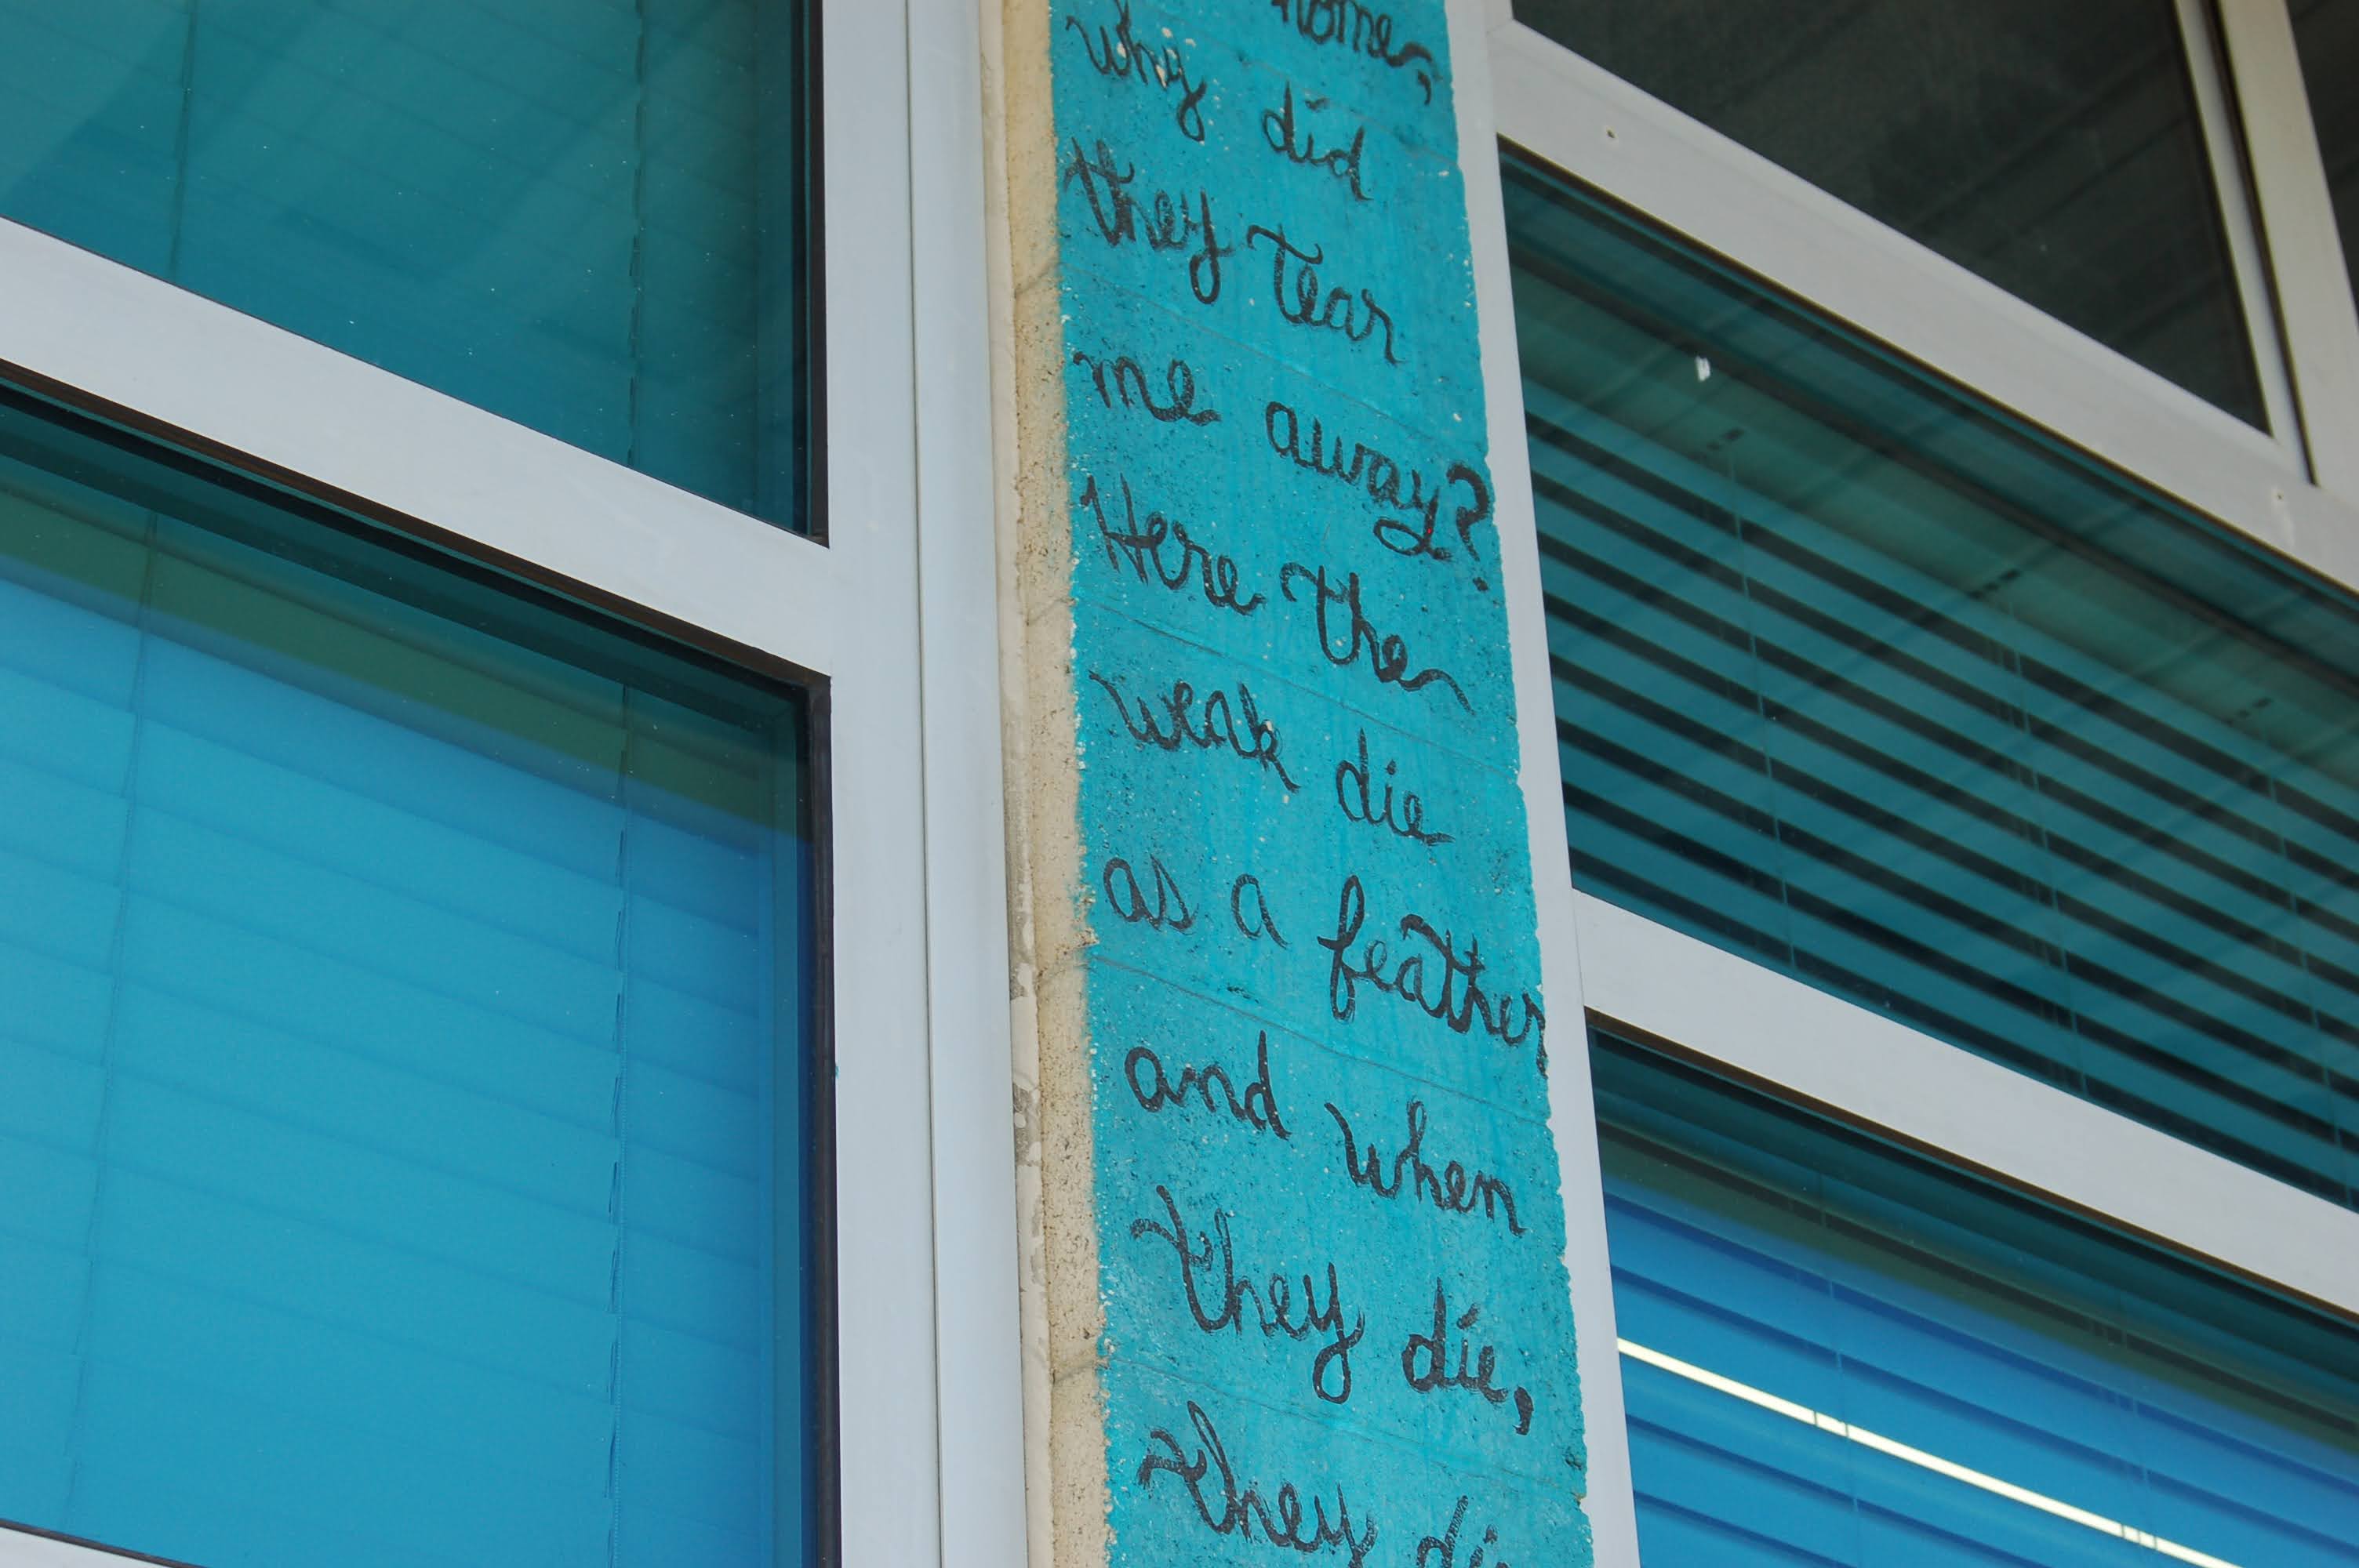 home,
why did
they tear
me away?
Here the
weak die
as a feather
and when
they die,
they